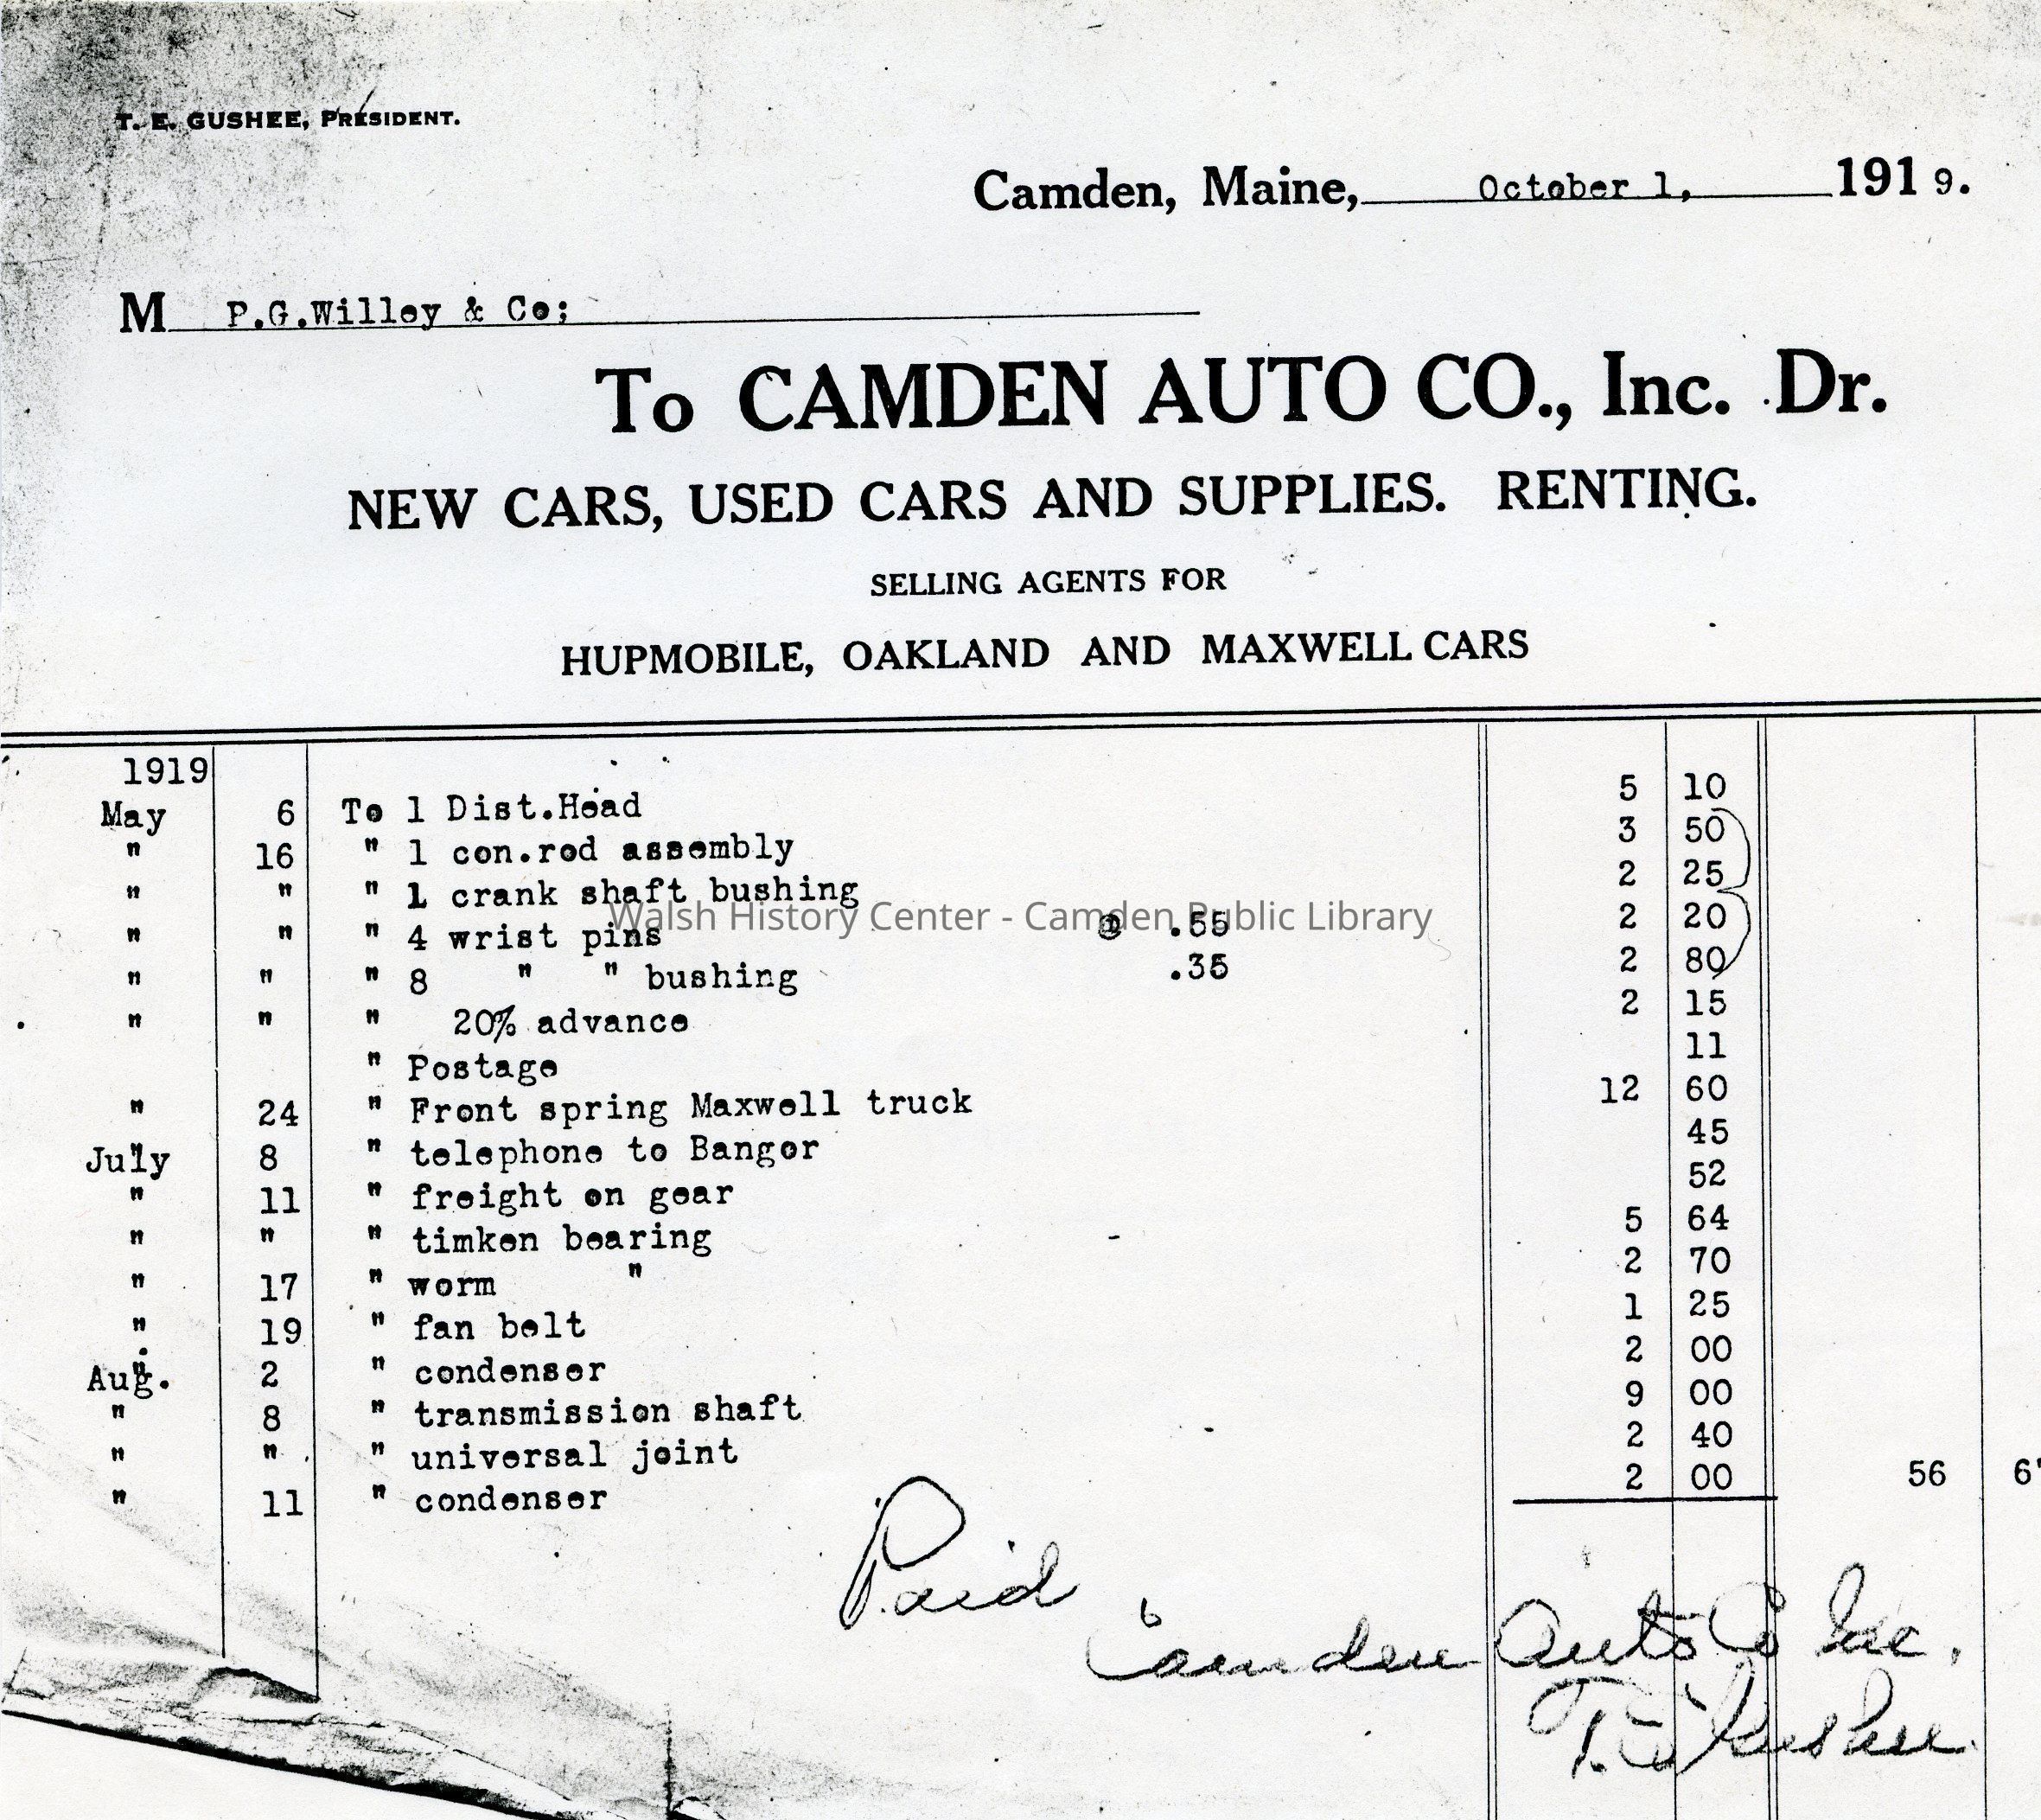 T. E. GUSHEE, PRESIDENT.
Camden, Maine, October 1, 1919.
M P.G.Willey & Co;
To CAMDEN AUTO CO., Inc. Dr.
NEW CARS, USED CARS AND SUPPLIES. RENTING.
SELLING AGENTS FOR
HUPMOBILE, OAKLAND AND MAXWELL CARS
1919
May 6 To 1 Dist.Head 5 10
" 16 " 1 con.rod assembly 3 50
" " " 1 crank shaft bushing 2 25
Walsh History Center - Camden Public Library
" " " 4 wrist pins @ .55 2 20
" " " 8 " " bushing .35 2 80
" " " 20% advance 2 15
" Postage 11
" 24 " Front spring Maxwell truck 12 60
July 8 " telephone to Bangor 45
" 11 " freight on gear 52
" " " timken bearing 5 64
" 17 " worm " 2 70
" 19 " fan belt 1 25
Aug. 2 " condenser 2 00
" 8 " transmission shaft 9 00
" " " universal joint 2 40
" 11 " condenser 2 00 56 6
Paid
Camden Auto Co Inc.
T.E. Gushee.